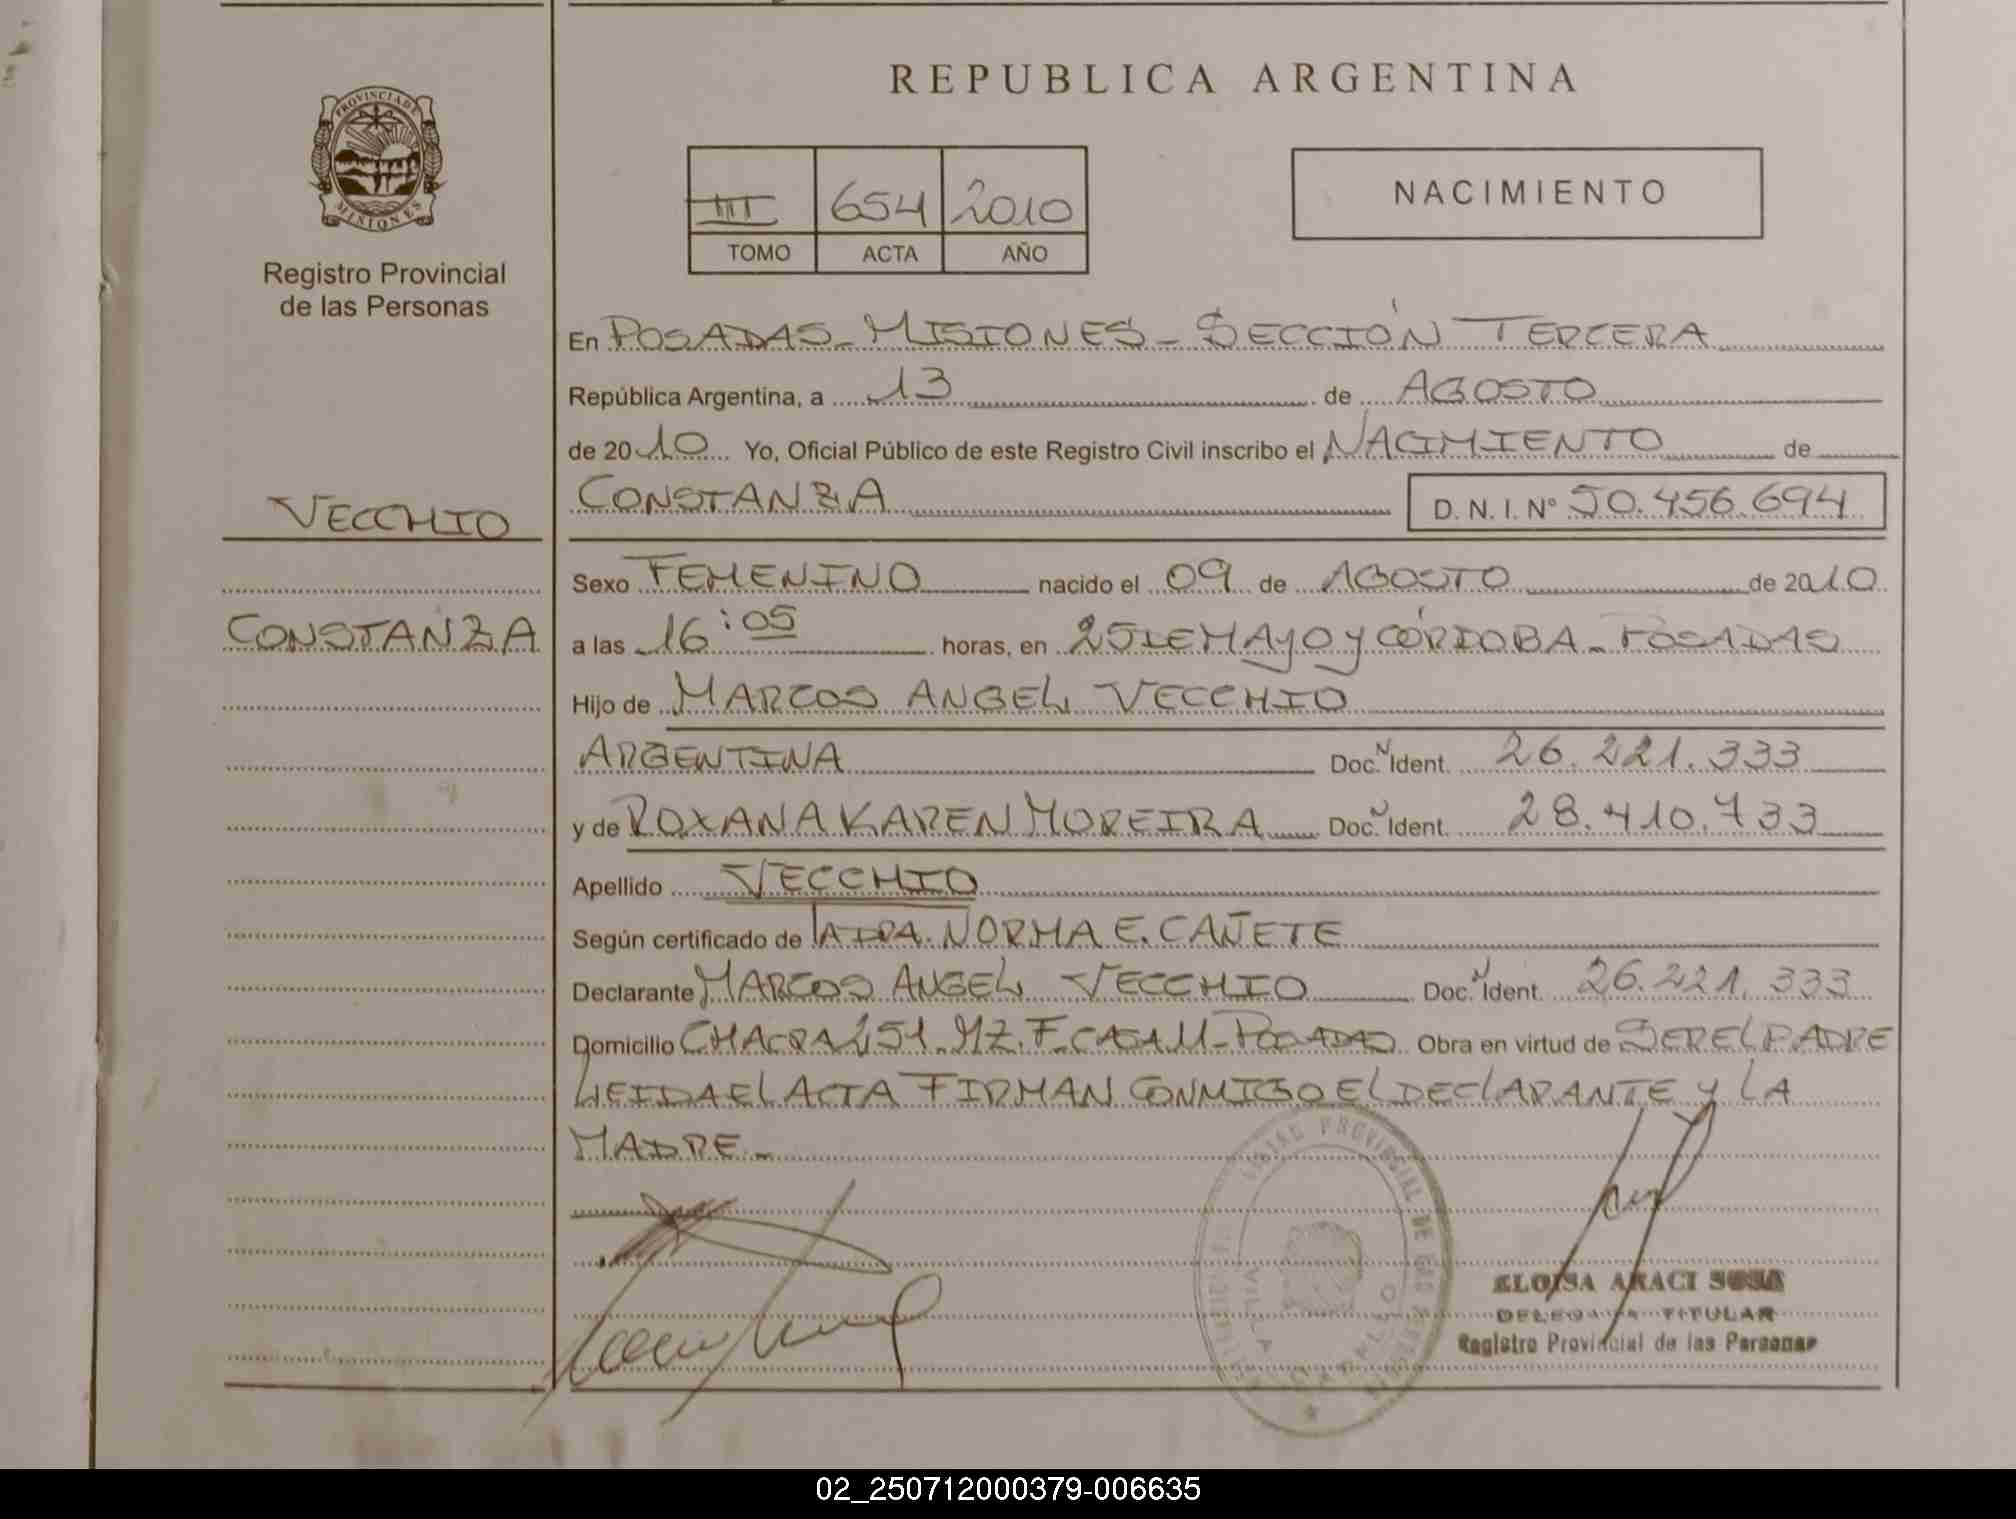 REPUBLICA ARGENTINA
PROVINCIA DE
MISIONES
Registro Provincial
de las Personas
III 654 2010
TOMO ACTA AÑO
NACIMIENTO
En POSADAS - MISIONES - SECCIÓN TERCERA
República Argentina, a 13 de AGOSTO
de 2010 Yo, Oficial Público de este Registro Civil inscribo el NACIMIENTO de
VECCHIO
CONSTANZA D. N. I. Nº 50.456.694
Sexo FEMENINO nacido el 09 de AGOSTO de 2010
CONSTANZA
a las 16:05 horas, en 25 DE MAYO y CÓRDOBA - POSADAS
Hijo de MARCOS ANGEL VECCHIO
ARGENTINA Doc. N Ident. 26.221.333
y de ROXANA KAREN MOREIRA Doc. N Ident. 28.410.733
Apellido VECCHIO
Según certificado de LA DRA. NORMA E. CAÑETE
Declarante MARCOS ANGEL VECCHIO Doc. N Ident. 26.221.333
Domicilio CHACRA 251 - MZ. F - CASA 11 - POSADAS Obra en virtud de SER EL PADRE
LEIDA EL ACTA FIRMAN CONMIGO EL DECLARANTE y LA
MADRE -
PROVINCIAL DE LAS
ELOISA ARACI SOSA
DELEGADA TITULAR
Registro Provincial de las Personas
02_250712000379-006635